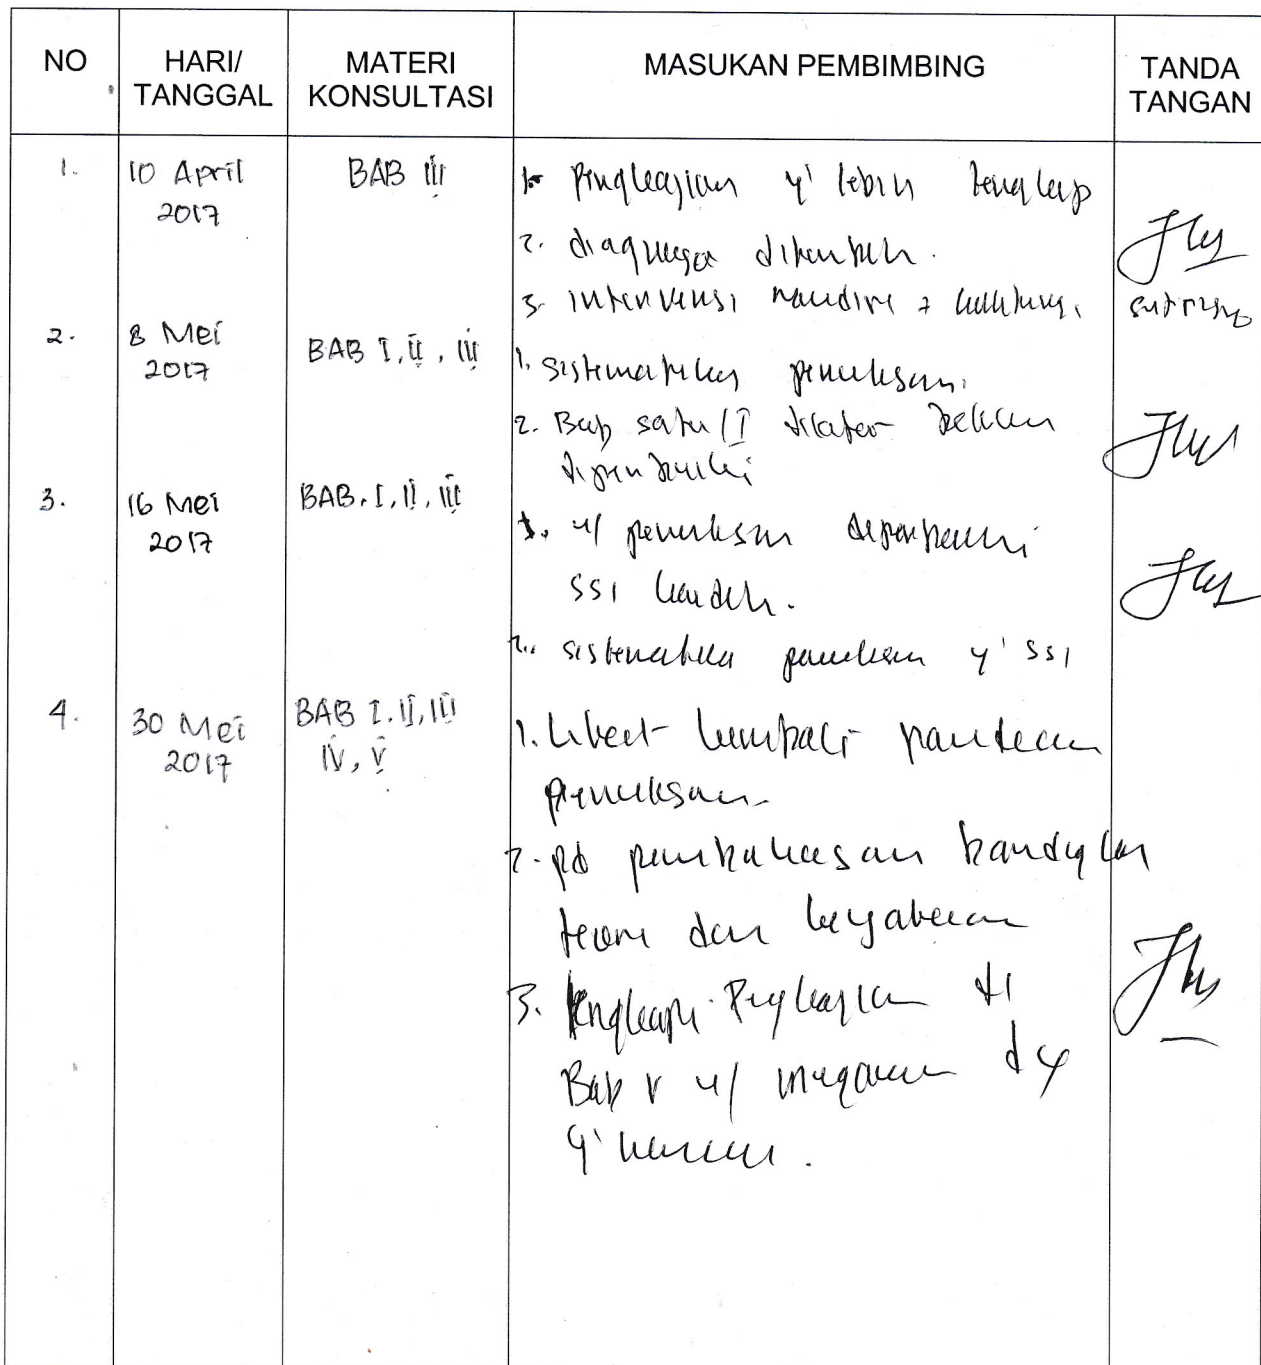 NO
HARI/
TANGGAL
MATERI
KONSULTASI
MASUKAN PEMBIMBING
TANDA
TANGAN
1.
10 April
2017
BAB III
1. Pengkajian y' lebih lengkap
2. diagnosa ditambah.
3. intervensi mandiri +
sutrisno
2.
8 Mei
2017
BAB I, II, III
1. sistematika penulisan.
2. Bab satu / I latar belakang
diperbaiki
3.
16 Mei
2017
BAB. I, II, III
1. u/ penulisan diperbaiki
SSI kaidah.
2. sistematika penulisan y' SSI
4.
30 Mei
2017
BAB I. II, III
IV, V
1. Lihat kembali panduan
penulisan.
2. pd pembahasan bandingkan
teori dan kenyataan
3. lengkapi Pengkajian di
Bab V u/ dx
y'